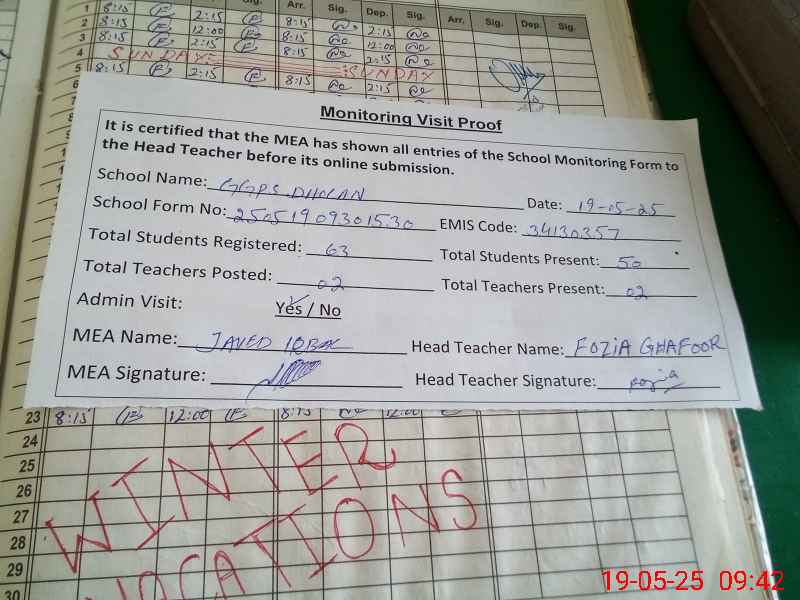 Sig. Arr. Sig. Dep. Sig. Arr. Sig. Dep. Sig.
1 8:15 2:15 8:15 2:15
2 8:15 12:00 8:15 12:00
3 8:15 2:15 8:15 2:15
4 SUNDAY SUNDAY
5 8:15 2:15 8:15 2:15
6
Monitoring Visit Proof
It is certified that the MEA has shown all entries of the School Monitoring Form to
the Head Teacher before its online submission.
School Name: GGPS DHOLAN Date: 19-05-25
School Form No: 25051909301530 EMIS Code: 34130357
Total Students Registered: 63 Total Students Present: 50
Total Teachers Posted: 02 Total Teachers Present: 02
Admin Visit: Yes / No
MEA Name: JAVED IQBAL Head Teacher Name: FOZIA GHAFOOR
MEA Signature: Head Teacher Signature: Fozia
23 8:15 12:00 8:15 12:00
24
25
26
27
28
29
30
WINTER
VACATIONS
19-05-25 09:42